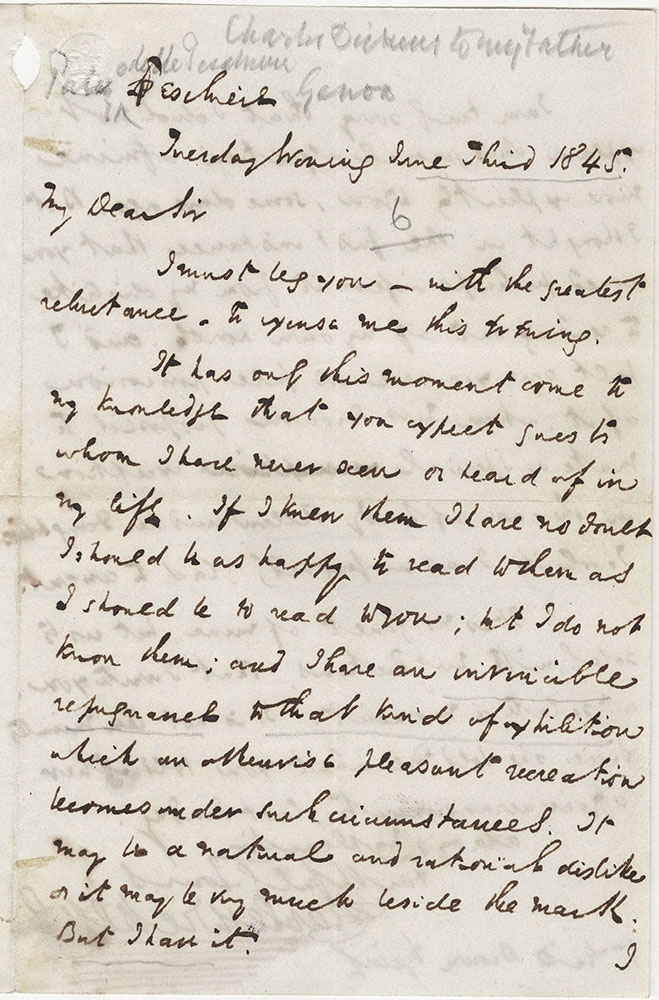 Charles Dickens to my Father
delle Peschiere
Genoa
Peschiere
Tuesday Evening June Third 1845.
6
My Dear Sir
I must beg you – with the greatest
reluctance – to excuse me this Evening.
It has only this moment come to
my knowledge that you expect guests
whom I have never seen or heard of in
my life. If I knew them I have no doubt
I should be as happy to read to them as
I should be to read to you; but I do not
know them; and I have an invincible
repugnance to that kind of exhibition
which an otherwise pleasant recreation
becomes under such circumstances. It
may be a natural and rational dislike
or it may be very much beside the mark.
But I have it.
I